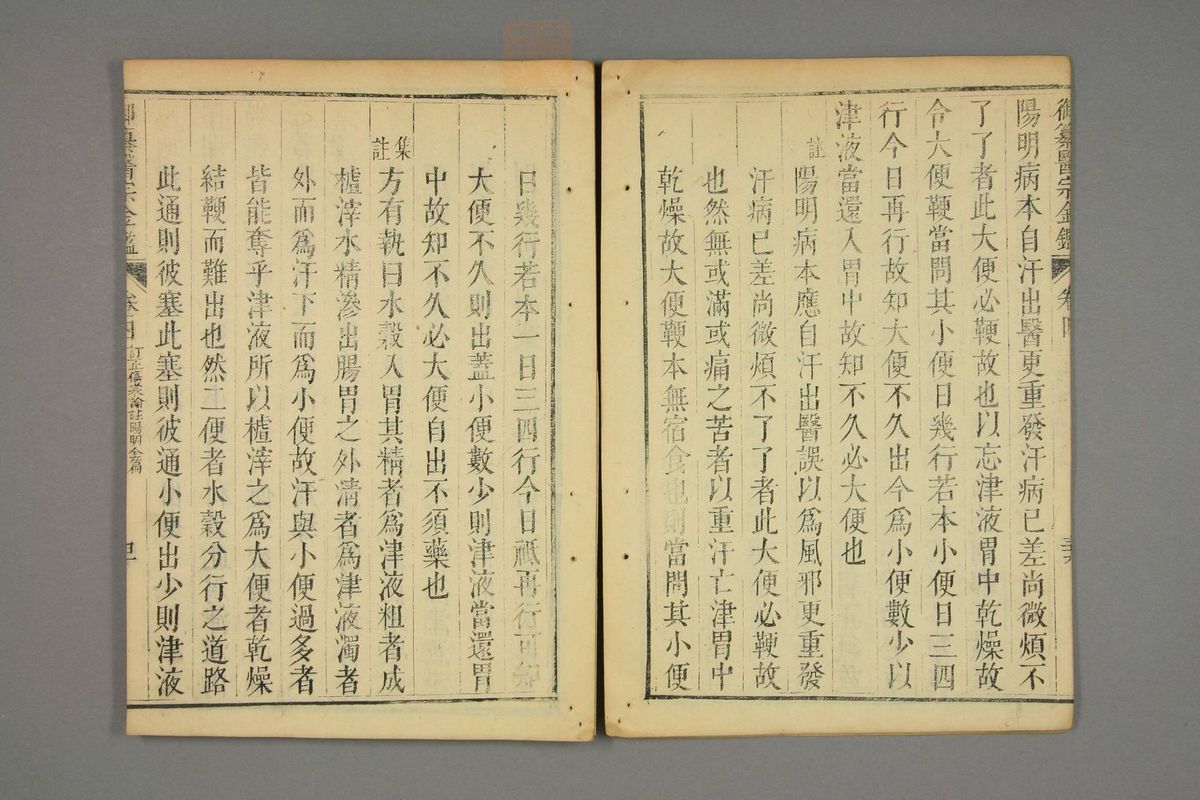 御纂醫宗金鑑 卷四
陽明病本自汗出醫更重發汗病已差尚微煩不
了了者此大便必鞕故也以亡津液胃中乾燥故
令大便鞕當問其小便日幾行若本小便日三四
行今日再行故知大便不久出今爲小便數少以
津液當還入胃中故知不久必大便也
註 陽明病本應自汗出醫誤以爲風邪更重發
汗病已差尚微煩不了了者此大便必鞕故
也然無或滿或痛之苦者以重汗亡津胃中
乾燥故大便鞕本無宿食也則當問其小便
日幾行若本一日三四行今日祗再行可知
大便不久則出蓋小便數少則津液當還胃
中故知不久必大便自出不須藥也
集註 方有執曰水穀入胃其精者爲津液粗者成
樝滓水精滲出腸胃之外淸者爲津液濁者
外而爲汗下而爲小便故汗與小便過多者
皆能奪乎津液所以樝滓之爲大便者乾燥
結鞕而難出也然二便者水穀分行之道路
此通則彼塞此塞則彼通小便出少則津液
御纂醫宗金鑑 卷四 訂正傷寒論註陽明全篇